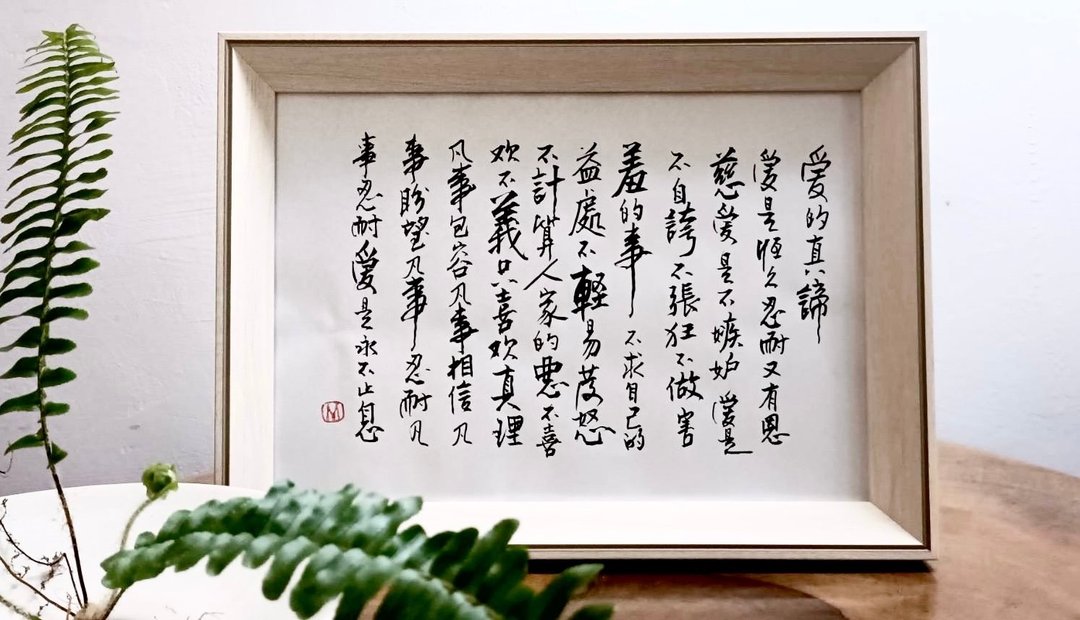 愛的真諦
愛是恆久忍耐又有恩
慈愛是不嫉妒愛是
不自誇不張狂不做害
羞的事不求自己的
益處不軽易發怒
不計算人家的悪不喜
欢不義只喜欢真理
凡事包容凡事相信凡
事盼望凡事忍耐凡
事忍耐愛是永不止息
M